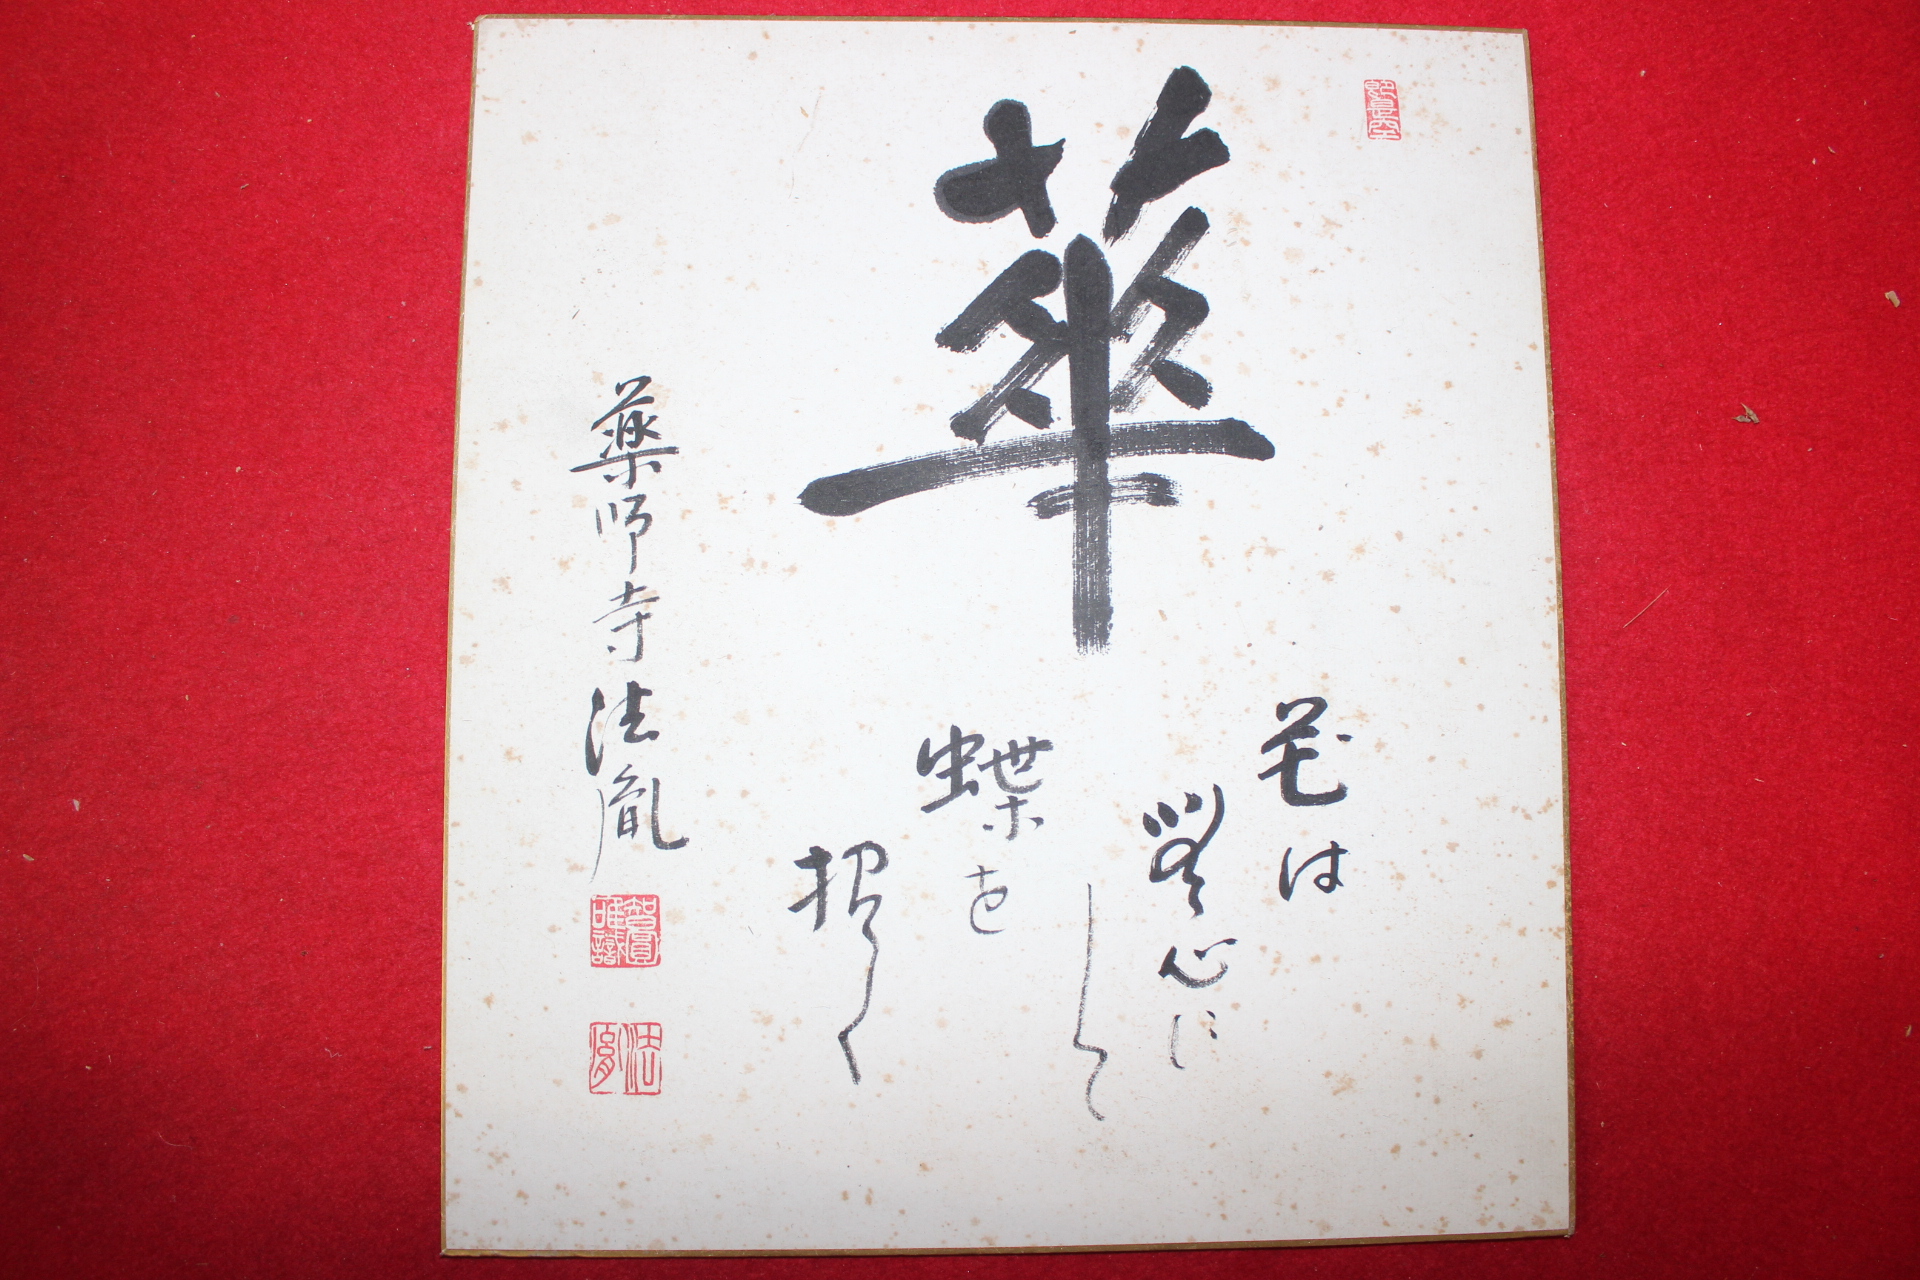 華
花は
無心に
して
蝶を
招く
薬師寺法胤
唯識
法胤